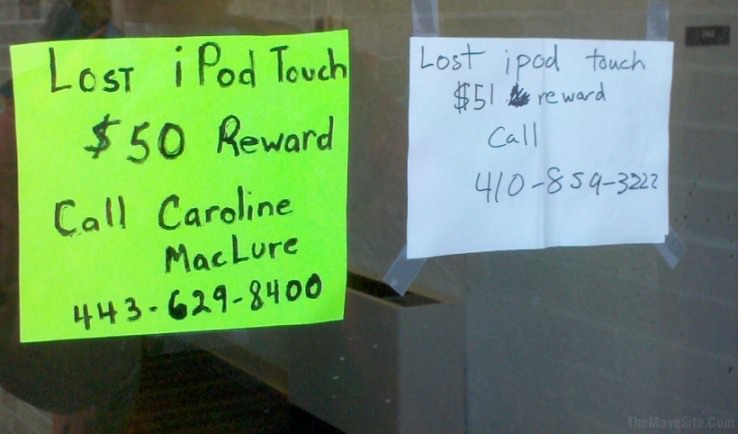 Lost iPod Touch
$50 Reward
Call Caroline
MacLure
443-629-8400
Lost ipod touch
$51 reward
Call
410-859-3222
TheMaveSite.Com